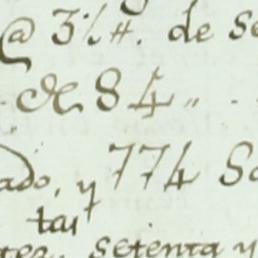 @ 3%#. de se
de 84,,
ado, y 774 So
tas
tes, setenta y